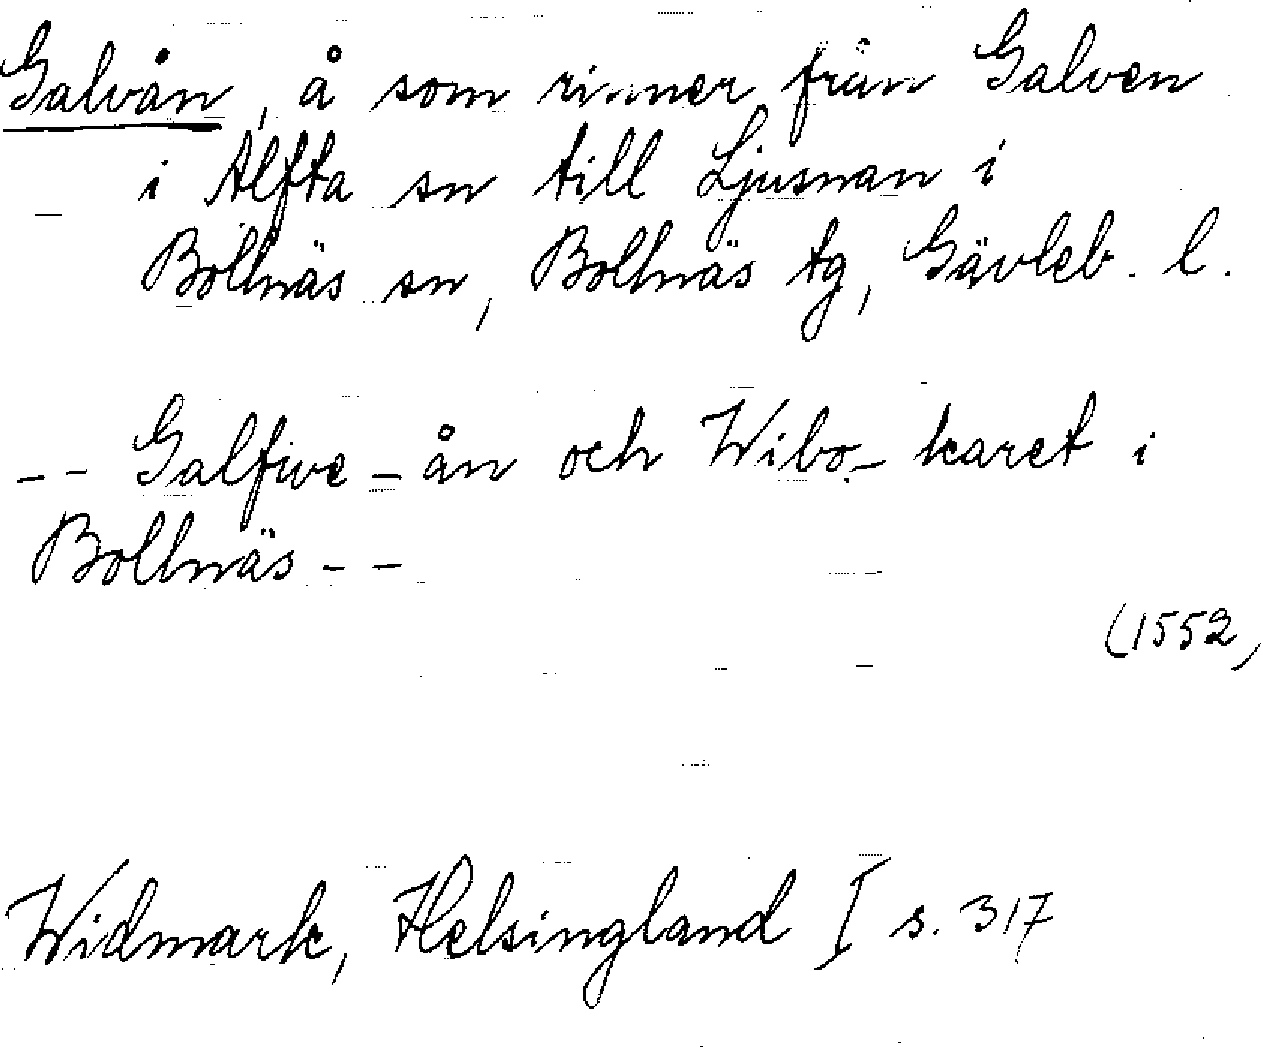 Galvån, å som rinner från Galven
i Alfta sn till Ljusnan i
Bollnäs sn, Bollnäs tg, Gävleb. l.
-- Galfwe-ån och Wibo-karet i
Bollnäs --
(1552,
Widmark, Helsingland I s. 317